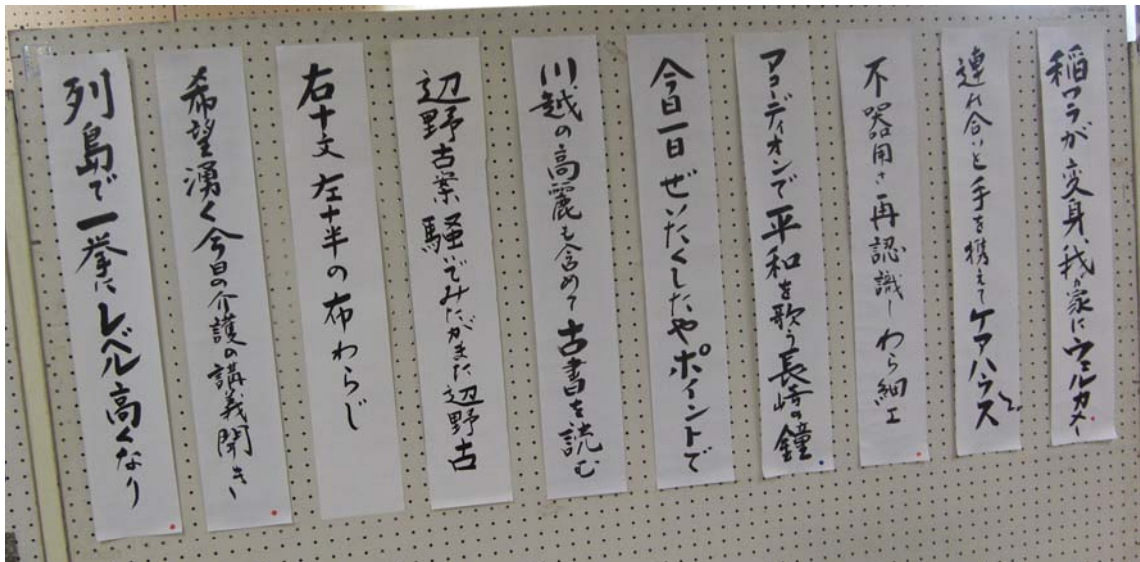 稲ワラが変身、我が家にウェルカメー
連れ合いと手を携えてケアハウスへ
不器用さ再認識しわら細工
アコーディオンで平和を歌う長崎の鐘
今日一日ぜいたくしたやポイントで
川越の高麗も含めて古書を読む
辺野古案騒いでみたがまた辺野古
右十文左十半の布わらじ
希望湧く今日の介護の講義聞き
列島で一挙にレベル高くなり